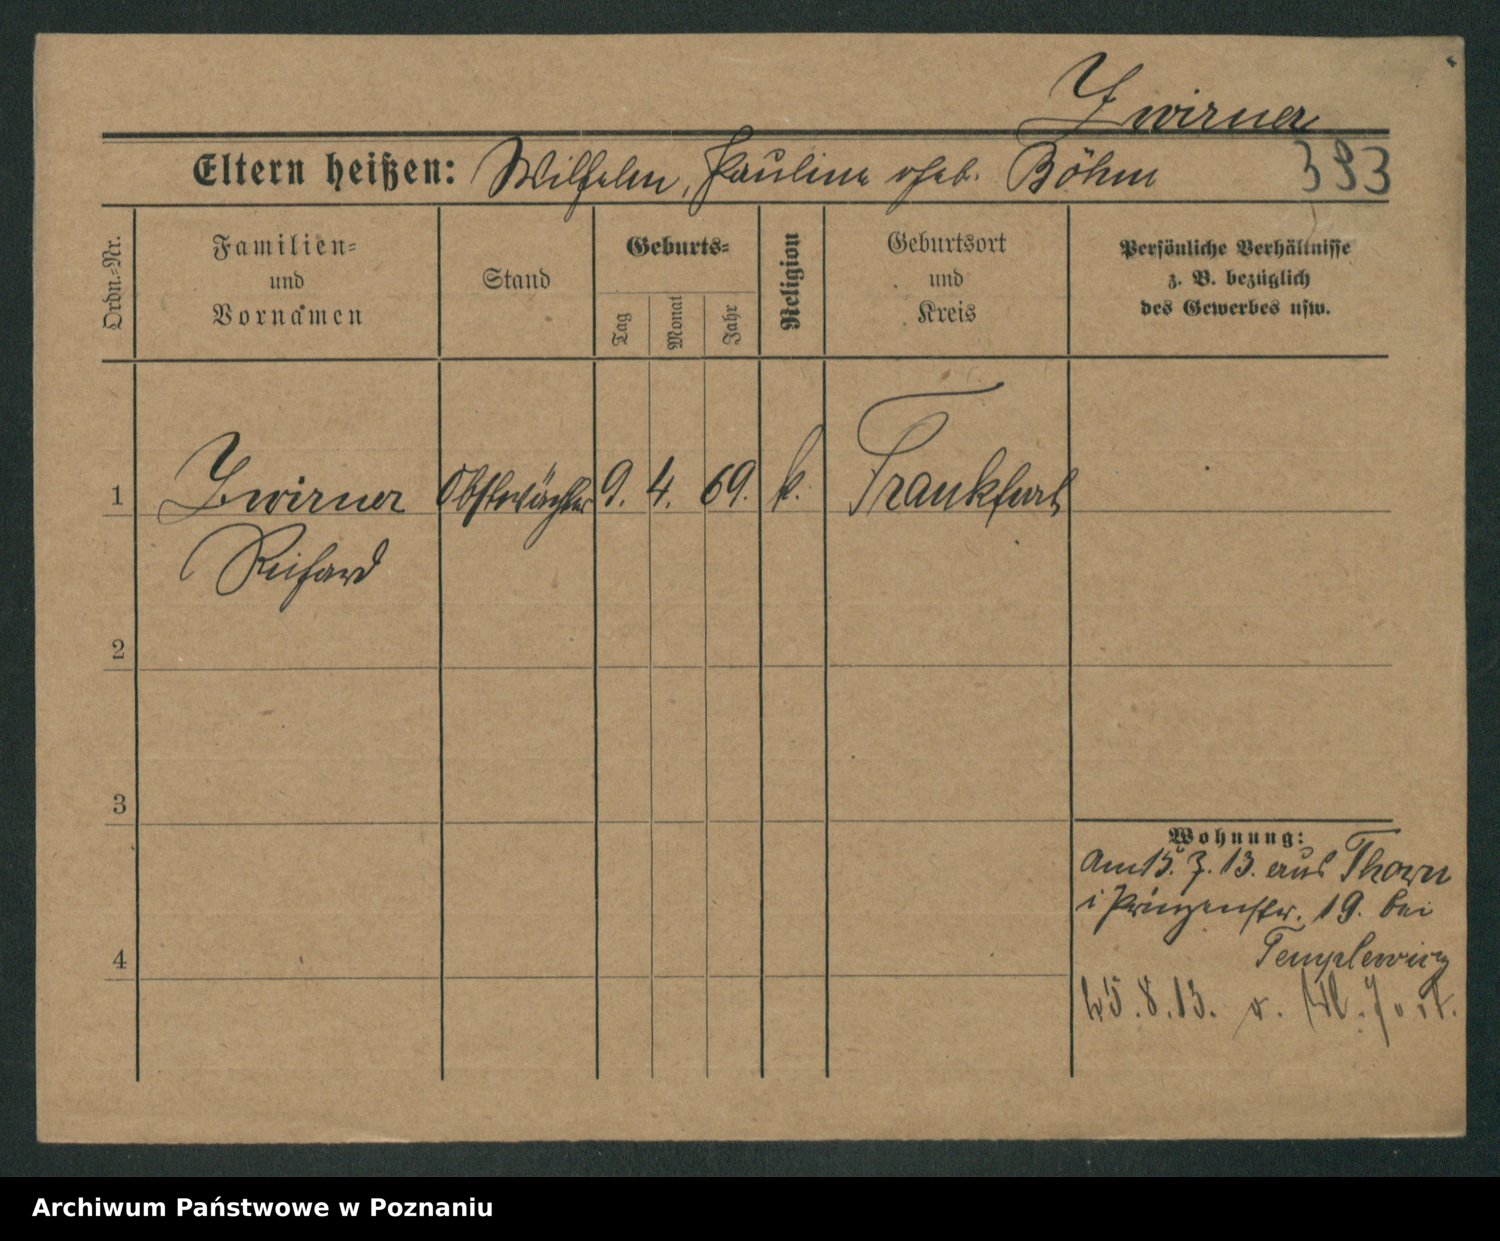 Zwirner
Eltern heißen: Wilhelm, Pauline geb. Böhm 383
Ordn.-Nr.
Familien-
und
Vornamen
Stand
Geburts-
Tag
Monat
Jahr
Religion
Geburtsort
und
Kreis
Persönliche Verhältnisse
z. B. bezüglich
des Gewerbes usw.
1 Zwirner Obstwächter 9. 4. 69. k. Frankfurt
Richard
2
3
4
Wohnung:
am 15. 7. 13. aus Thorn
i Prinzenstr. 19. bei
Templewicz
25.8.13.
Archiwum Państwowe w Poznaniu